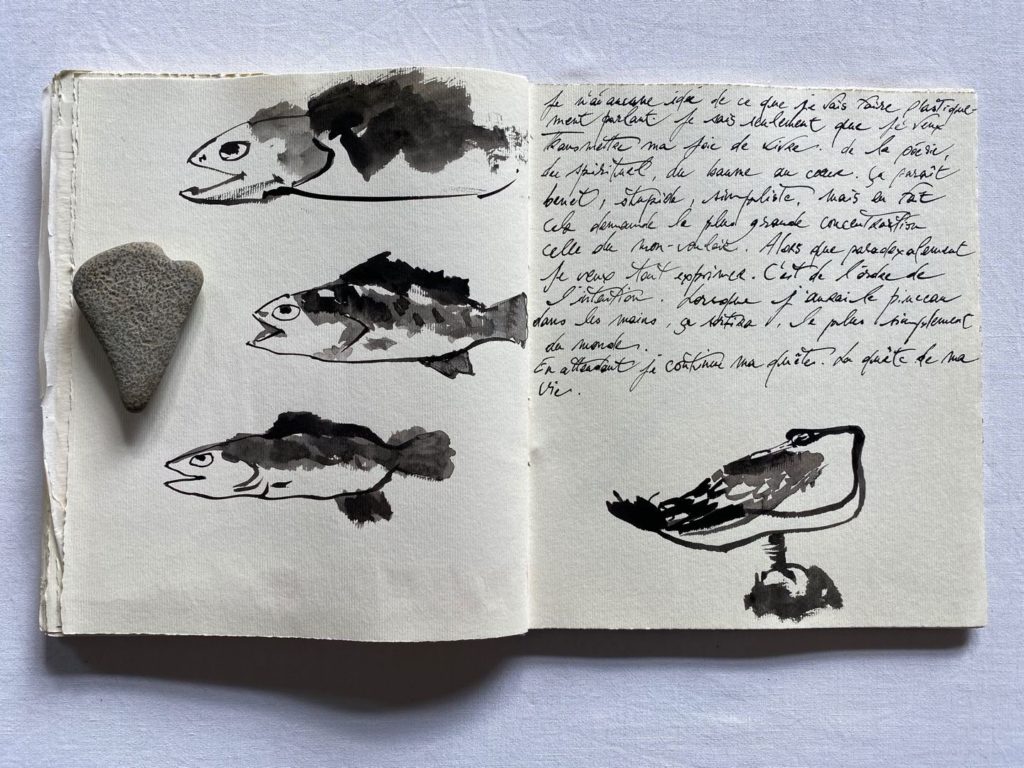 Je n'ai aucune idée de ce que je vais faire plastique
ment parlant je sais seulement que je veux
transmettre ma joie de vivre. de la poésie,
du spirituel, du baume au cœur. ça paraît
benet, stupide, simpliste, mais en fait
cela demande la plus grande concentration
celle du non-vouloir. Alors que paradoxalement
je veux tout exprimer. C'est de l'ordre de
l'intention. Lorsque j'aurai le pinceau
dans les mains, ça sortira, le plus simplement
du monde.
En attendant je continue ma quête. La quête de ma
vie.